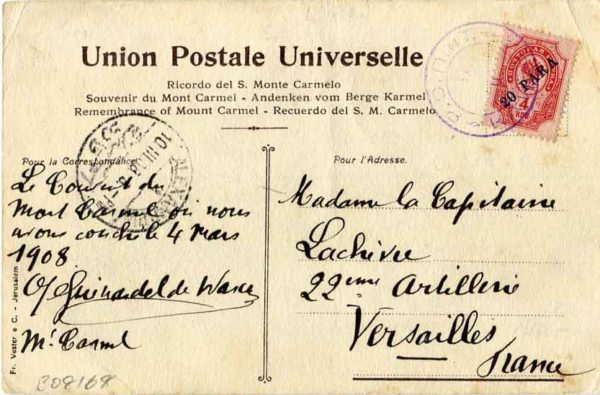 Union Postale Universelle
Ricordo del S. Monte Carmelo
Souvenir du Mont Carmel - Andenken vom Berge Karmel
Remembrance of Mount Carmel - Recuerdo del S. M. Carmelo
20 PARA
4
Pour la Correspondance.
Le Couvent du
Mont Carmel où nous
avons couché le 4 Mars
1908
Mt Carmel
Pour l'Adresse.
Madame la Capitaine
Lachèvre
22eme Artillerie
Versailles
France
10 III 08
Fr. Vester & C. - Jerusalem
B08168